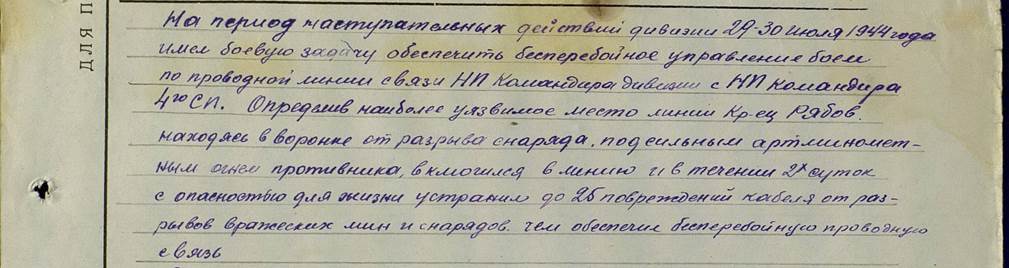 ДЛЯ П
На период наступательных действий дивизии 29-30 июля 1944 года
имел боевую задачу обеспечить бесперебойное управление боем
по проводной линии связи НП Командира дивизии с НП командира
4го СП. Определив наиболее уязвимое место линии Кр-ец Рябов.
находясь в воронке от разрыва снаряда, под сильным артминомет-
ным огнем противника, включился в линию и в течении 2х суток
с опасностью для жизни устранил до 25 повреждений кабеля от раз-
рывов вражеских мин и снарядов. чем обеспечил бесперебойную проводную
связь